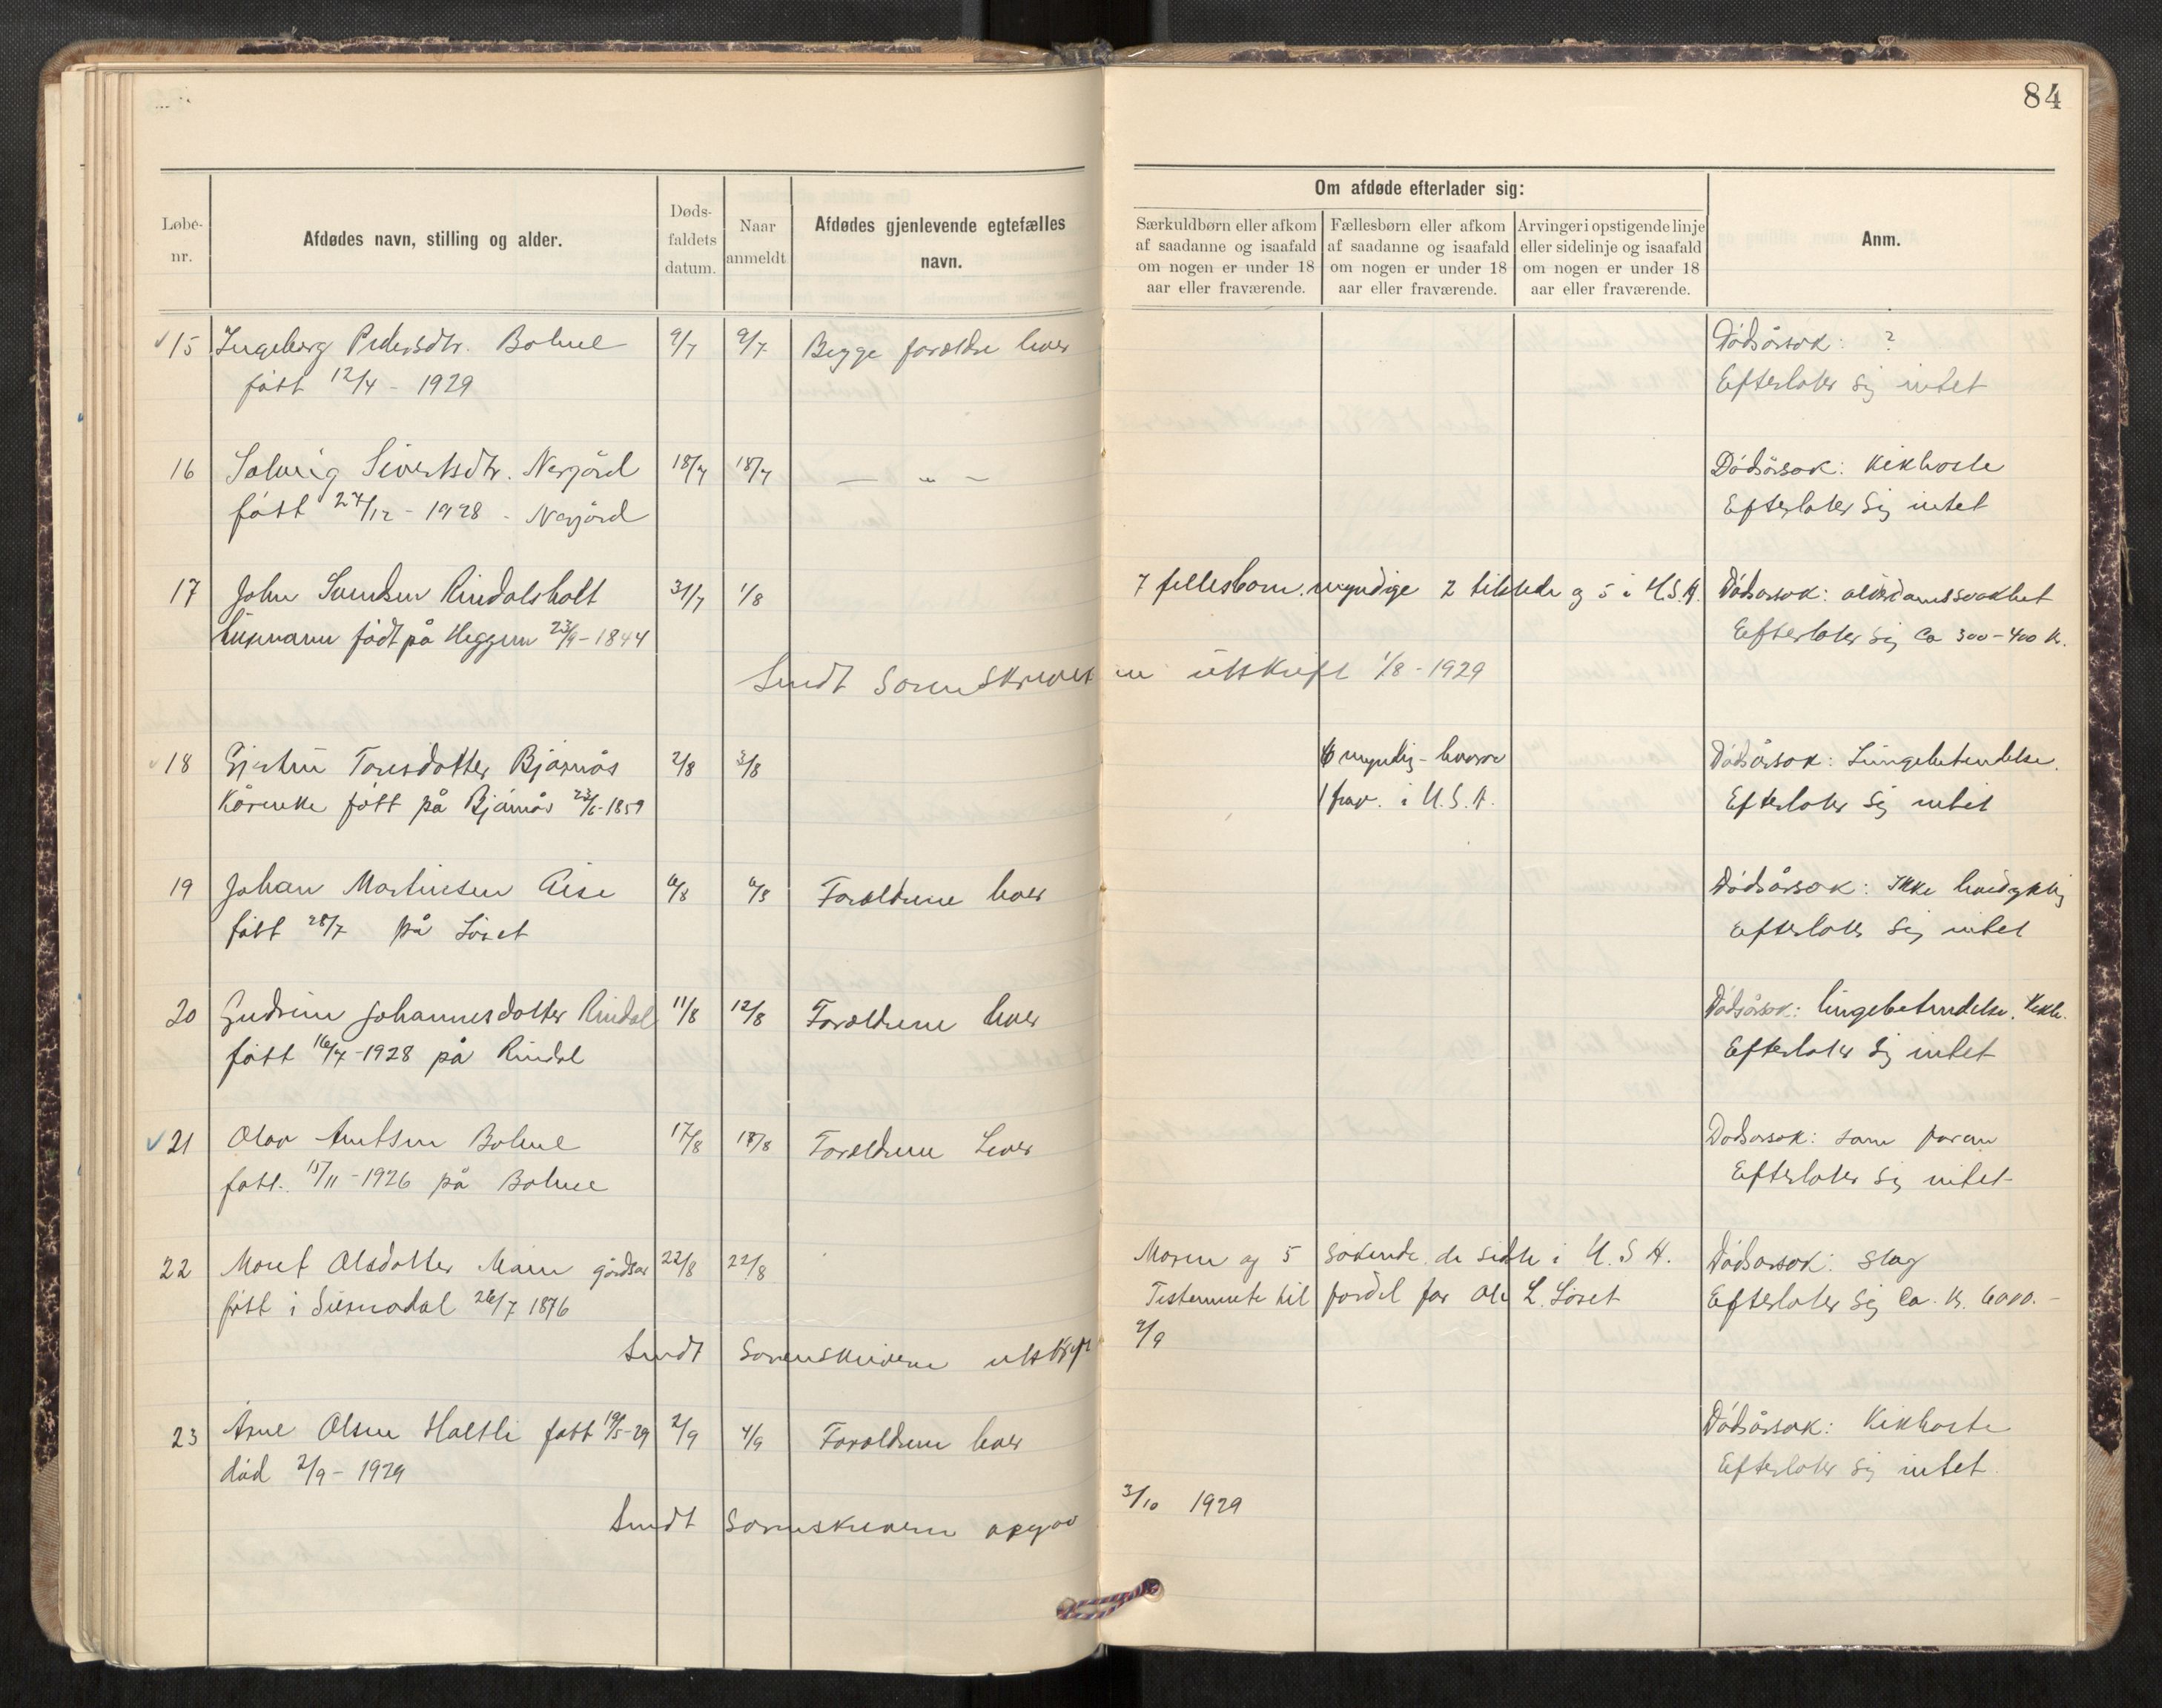 84
Løbe-
nr.
Afdødes navn, stilling og alder.
Døds-
faldets
datum.
Naar
anmeldt
Afdødes gjenlevende egtefælles
navn.
Om afdøde efterlader sig:
Særkuldbørn eller afkom
af saadanne og isaafald
om nogen er under 18
aar eller fraværende.
Fællesbørn eller afkom
af saadanne og isaafald
om nogen er under 18
aar eller fraværende.
Arvinger i opstigende linje
eller sidelinje og isaafald
om nogen er under 18
aar eller fraværende.
Anm.
15 Ingeborg Pedersdtr. Bolme 9/7 9/7 Begge foreldre lever Dødsårsak: ?
født 12/4 - 1929 Efterlater sig intet
16 Solveig Sivertsdtr. Nergård 18/7 18/7 — „ — Dødsårsak: Kikhoste
født 27/12 - 1928 - Nergård Efterlater sig intet
17 John Rindalsholt 31/7 1/8 7 fellesbarn. myndige 2 tilstede og 5 i U.S.A. Dødsårsak: alderdomssvakhet
født på Heggem 23/9 - 1844 Efterlater sig ca 300-400 kr.
Sendt Sorenskriveren utskrift 1/8 - 1929
18 Toresdotter Bjørnås 2/8 3/8 6 myndig - hvorav Dødsårsak: Lungebetendelse.
Kårenke født på Bjørnås 23/6-1859 1 frav. i U.S.A. Efterlater sig intet
19 Johan Martinsen Aise 6/8 6/8 Foreldrene lever Dødsårsak: Ikke
født 28/7 på Løset Efterlater sig intet
20 Gudrun Johannesdotter Rindal 11/8 12/8 Foreldrene lever Dødsårsak: lungebetendelse. Kikh.
født 16/7-1928 på Rindal Efterlater sig intet
21 Olav Arntsen Bolme 17/8 18/8 Foreldrene Lever Dødsårsak: som foran
født. 15/11-1926 på Bolme Efterlater sig intet
22 Marit Olsdotter Moen 22/8 22/8 Moren og 5 søskende de siste i U.S.A. Dødsårsak: slag
født i Surnadal 26/7 1876 Testemente til fordel for Ole L. Løset Efterlater sig ca. kr. 6000.-
Sendt Sorenskriveren utskrift 9/9
23 Arne Olsen Holtli født 19/5-29 2/9 4/9 Foreldrene lever Dødsårsak: Kikhoste
død 2/9 - 1929 Efterlater sig intet
Sendt Sorenskriveren opgav 3/10 1929